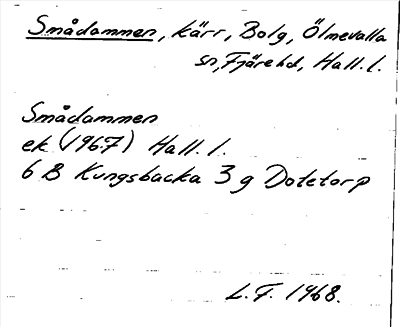 Smådammen, kärr, Bolg, Ölmevalla
sn, Fjäre hd, Hall. l.
Smådammen
ek (1967) Hall. l.
6 B Kungsbacka 3 g Dotetorp
L.F. 1968.